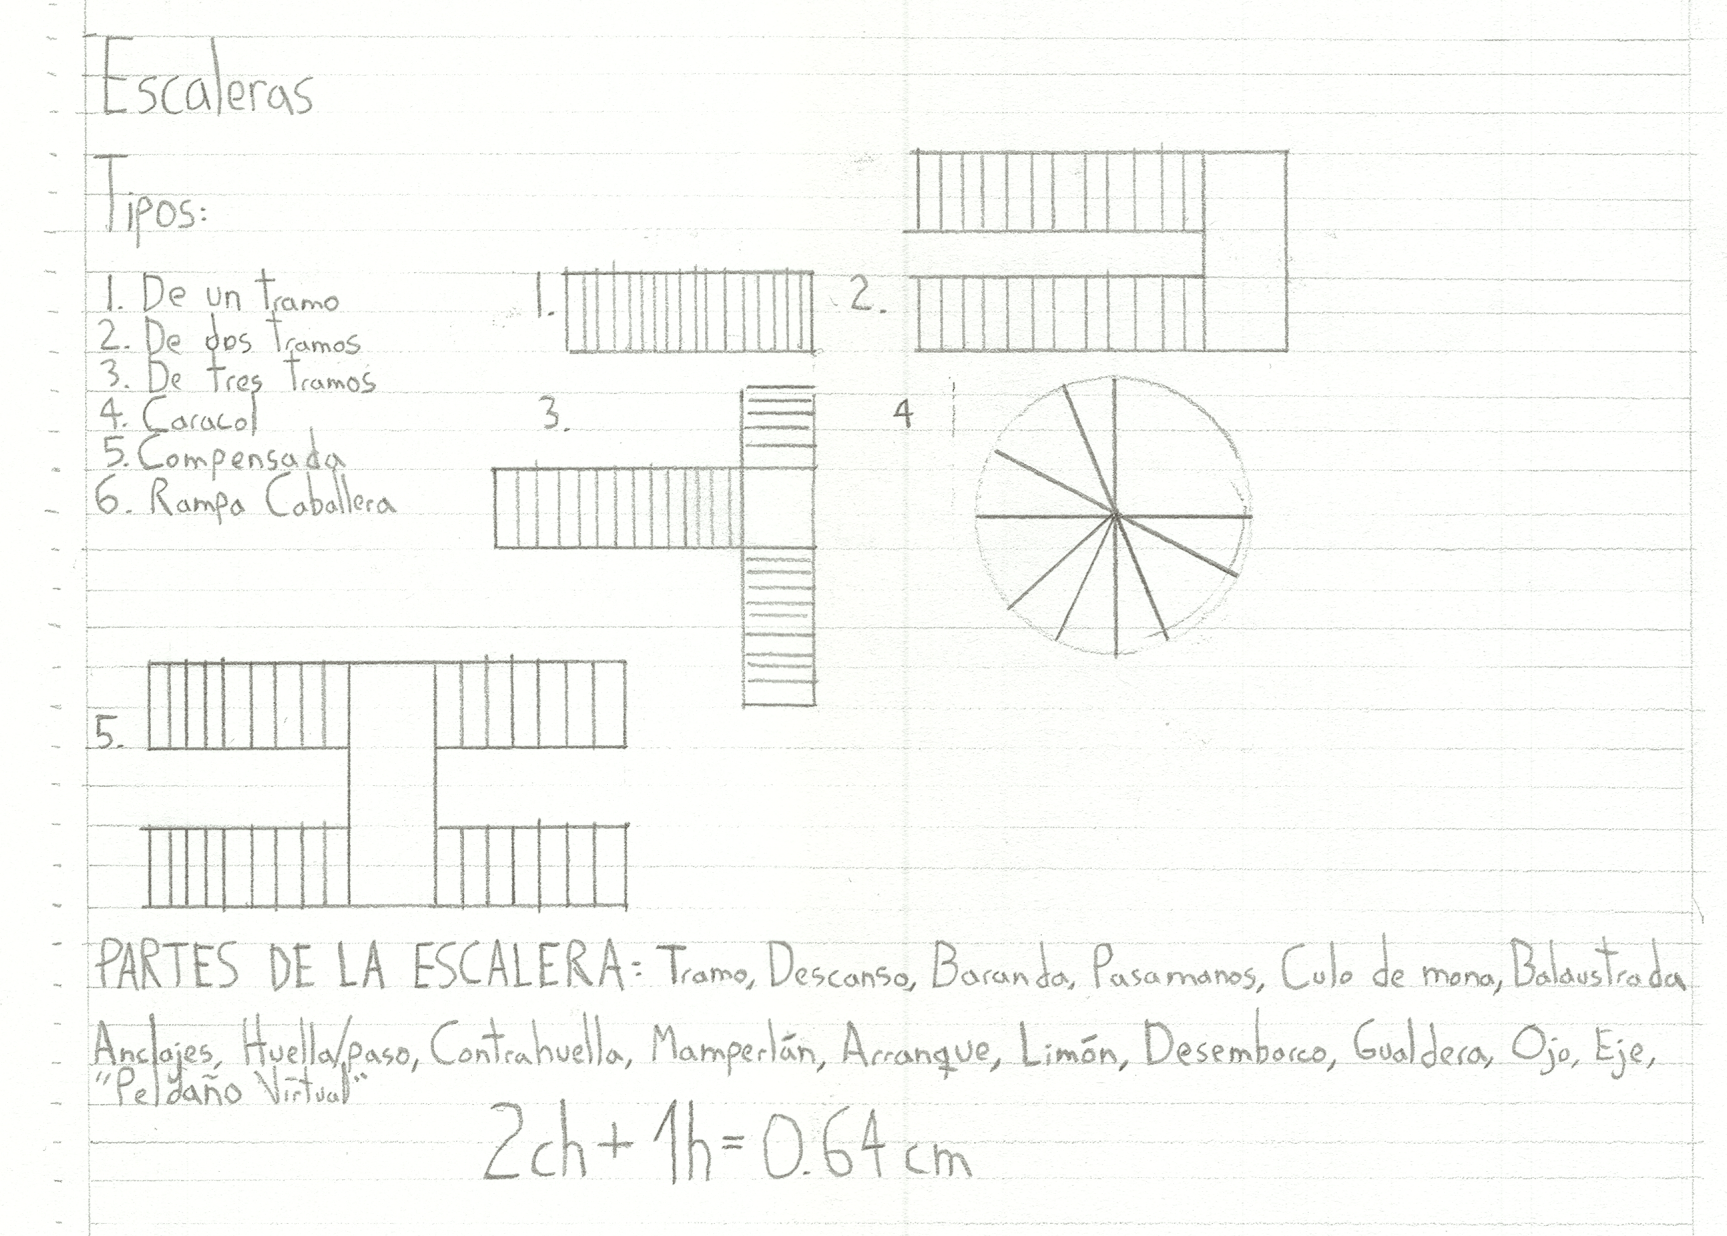 Escaleras
Tipos:
1. De un tramo
2. De dos tramos
3. De tres tramos
4. Caracol
5. Compensada
6. Rampa Caballera
1.
2.
3.
4
5.
PARTES DE LA ESCALERA: Tramo, Descanso, Baranda, Pasamanos, Culo de mona, Balaustrada
Anclajes, Huella/paso, Contrahuella, Mamperlán, Arranque, Limón, Desembarco, Gualdera, Ojo, Eje,
"Peldaño Virtual"
2ch + 1h = 0.64 cm